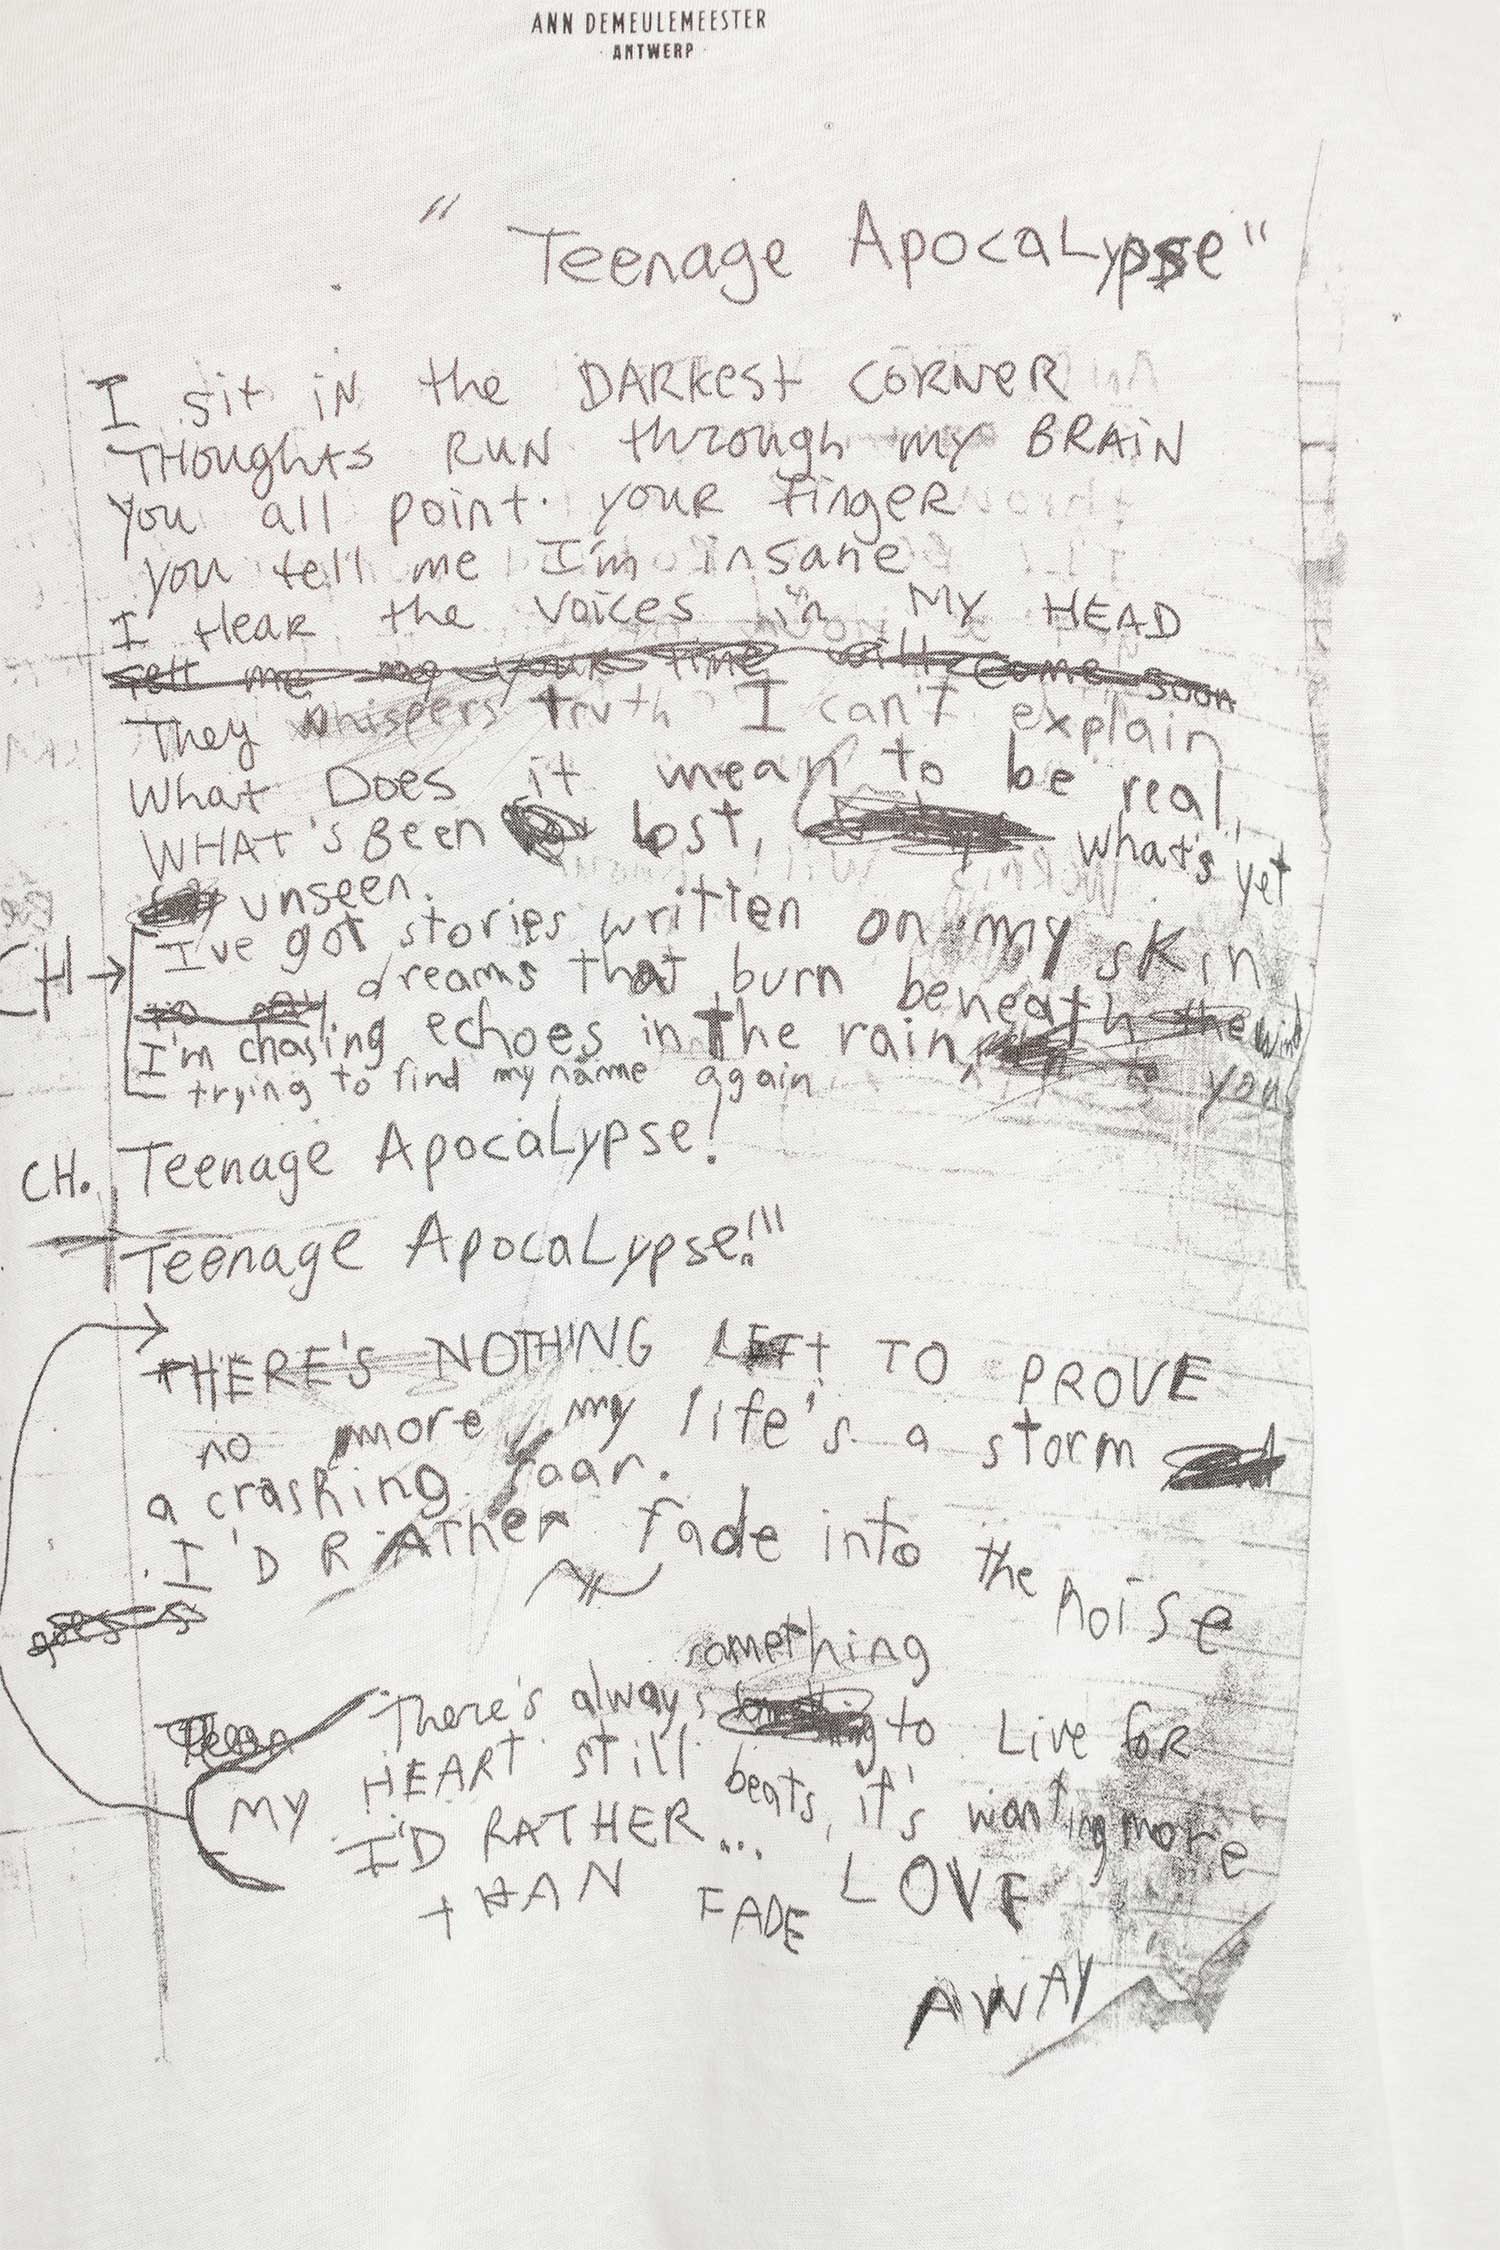 ANN DEMEULEMEESTER
· ANTWERP ·
" Teenage ApocaLypse "
I sit iN the DARKest CORNeR
THoughts RUN through my BRAiN
you all point. youR finger
you tell me I'm insane
I HeaR the Voices in MY HEAD
Tell me your time will come soon
They whispers truth I can't explain
What Does it mean to be real,
WHAt's Been lost, what's yet
unseen.
I've got stories written on my skin
CH → dreams that burn beneath the wind
I'm chasing echoes in the rain, you
trying to find my name again
CH. Teenage ApocaLypse!
Teenage ApocaLypse!!!
THERE'S NOTHING LEFt TO PROVE
no more, my life's a storm
a crashing roar.
I'D RATHeR fade into the noise
something
There's always something to Live foR
MY HEART still beats, it's wanting more
I'D RATHER... LOVE
tHAN FADE
AWAY